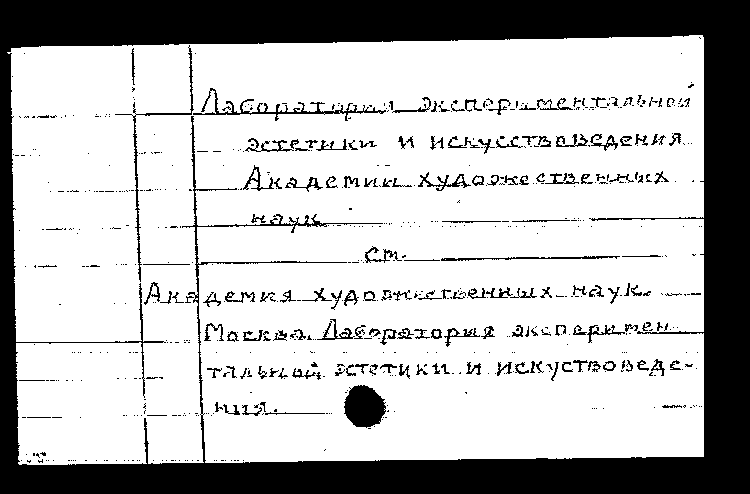 Лаборатория экспериментальной
эстетики и искусствоведения
Академии художественных
наук
ст.
Академия художественных наук.
Москва. Лаборатория эксперимен
тальной эстетики и искуствоведе-
ния.